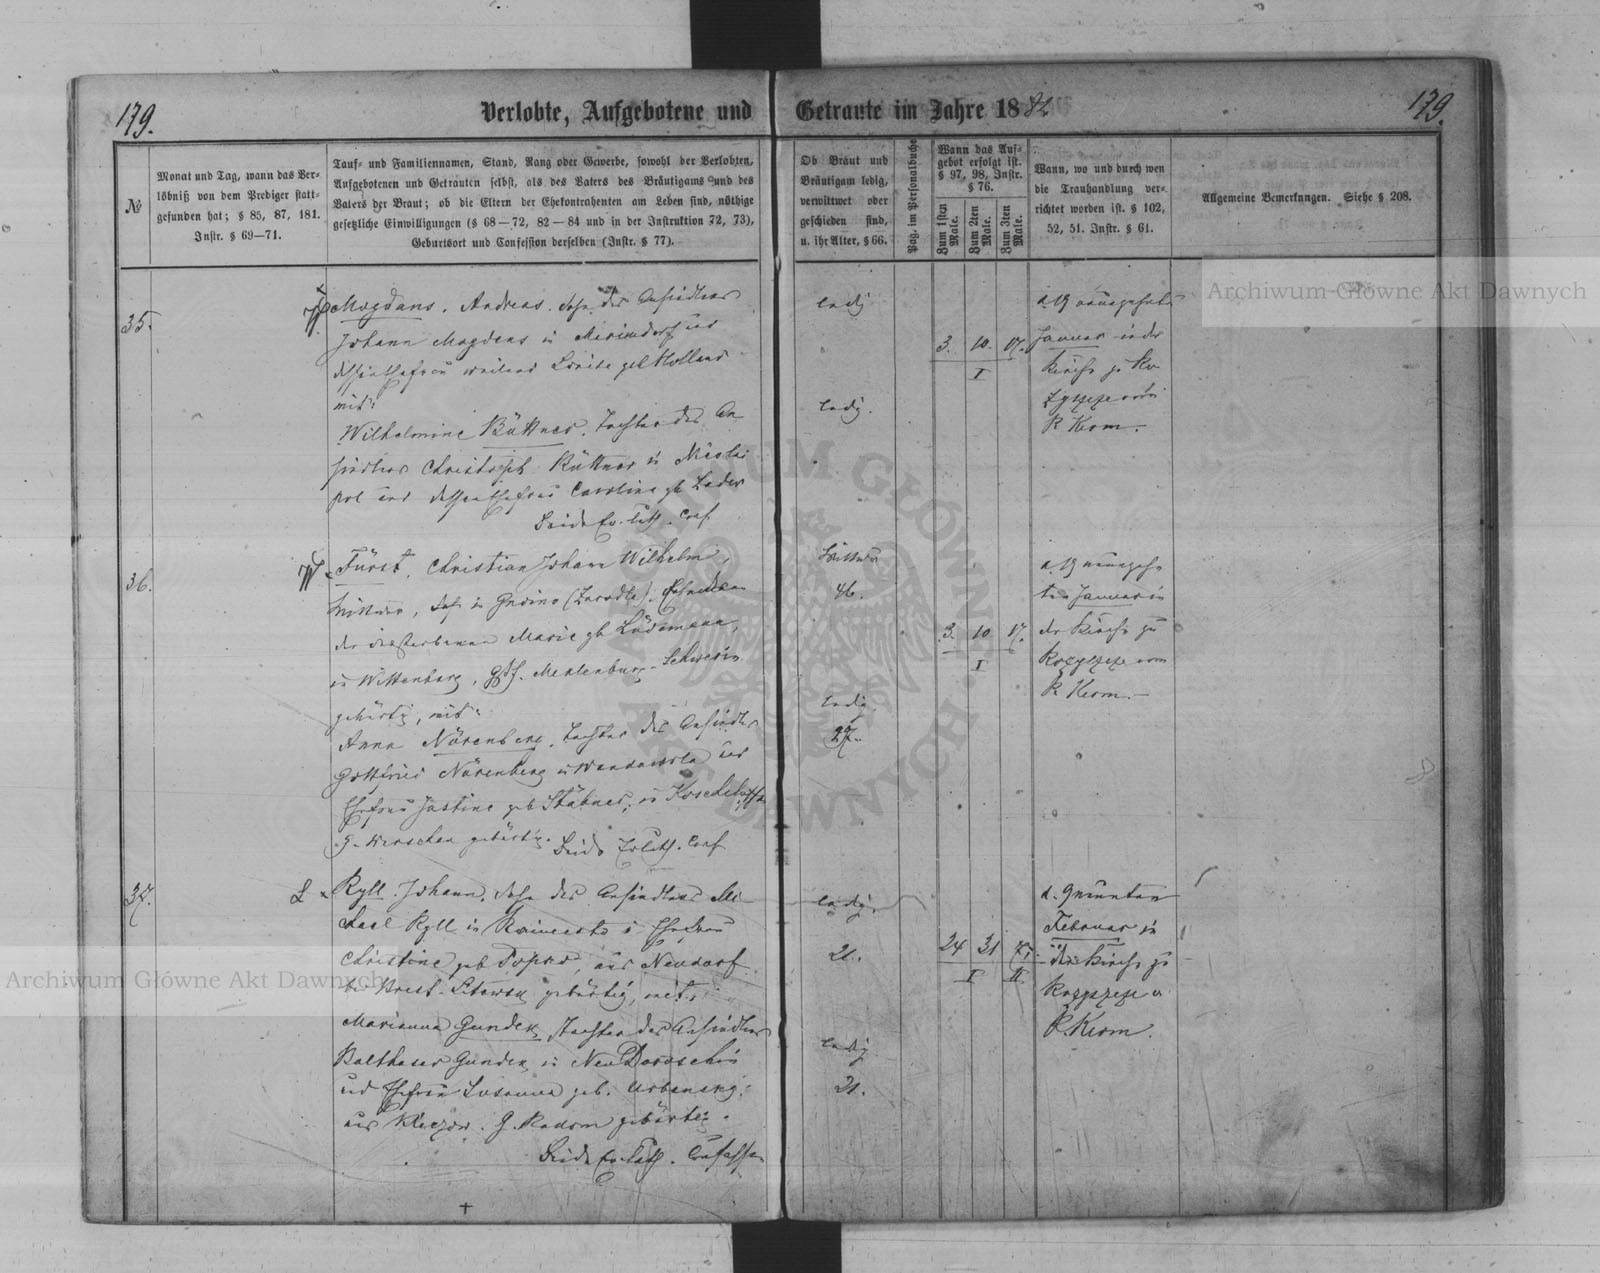 179.
Verlobte, Aufgebotene und Getraute im Jahre 1882
179.
№
Monat und Tag, wann das Ver-
löbniß von dem Prediger statt-
gefunden hat; § 85, 87, 181.
Instr. § 69—71.
Tauf- und Familiennamen, Stand, Rang oder Gewerbe, sowohl der Verlobten,
Aufgebotenen und Getrauten selbst, als des Vaters des Bräutigams und des
Vaters der Braut; ob die Eltern der Ehekontrahenten am Leben sind, nöthige
gesetzliche Einwilligungen (§ 68—72, 82—84 und in der Instruktion 72, 73),
Geburtsort und Confession derselben (Instr. § 77).
Ob Braut und
Bräutigam ledig,
verwittwet oder
geschieden sind,
u. ihr Alter, § 66.
Pag. im Personalbuche
Wann das Auf-
gebot erfolgt ist.
§ 97, 98, Instr.
§ 76.
Zum 1sten Male.
Zum 2ten Male.
Zum 3ten Male.
Wann, wo und durch wen
die Trauhandlung ver-
richtet worden ist. § 102,
52, 51. Instr. § 61.
Allgemeine Bemerkungen. Siehe § 208.
35.
Magdans, Andreas, Sohn des Ansiedlers
Johann Magdans in
Ehefrau weiland Louise geb Holland
mit:
Wilhelmine Büttner, Tochter des An
siedlers Christoph Büttner in Nicolai
pol und dessen Ehefrau Caroline gb
Beide Ev. Luth. Conf
ledig
ledig.
3. 10. 17.
I
d. 19
Januar in der
Kirche zu Ro
zyszcze von
P. Kerm.
36.
W.
Fürst, Christian Johann Wilhelm,
Wittwer, Sohn in
der verstorbenen Marie gb Lüdemann,
in Wittenburg, Meklenburg-Schwerin
gebürtig, mit:
Anna Nörenberg, Tochter des Ansiedlers
Gottfried Nörenberg in und
Ehefrau Justine geb Stübner, in
G. Warschau gebürtig. Beide Ev Luth. Conf
Wittwer
46.
ledig.
27.
3. 10. 17.
I
d. 19 neunzehn
ten Januar in
der Kirche zu
Rozyszcze von
P. Kerm.
37.
L
Ryll Johann, Sohn des Ansiedlers Mi
chael Ryll in u Ehefrau
Christine geb aus Neudorf
bei Brest-Litowsk gebürtig, mit:
Marianna Gundek, Tochter des Ansiedlers
Balthaser Gundek in Neu Doroschin
und Ehefrau Susanna geb. Urbansky,
aus G. Radom gebürtig.
Beide Ev. Luth. Confession
ledig.
21.
ledig
21.
24 31 7.
I II
d. 9 neunten
Februar in
der Kirche zu
Rozyszcze v.
P. Kerm.
Archiwum Główne Akt Dawnych
Archiwum Główne Akt Dawnych
ARCHIWUM GŁÓWNE AKT DAWNYCH